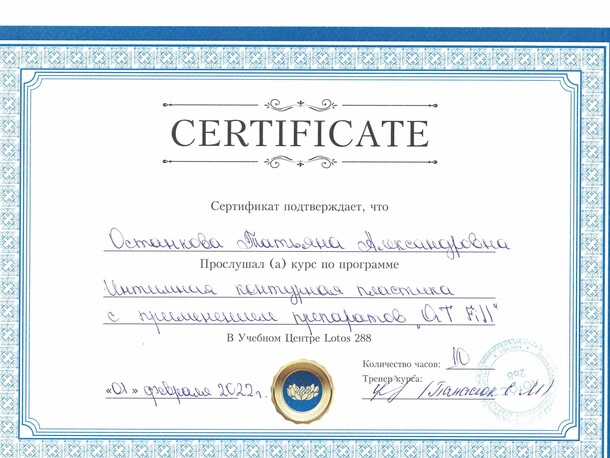 CERTIFICATE
Сертификат подтверждает, что
Останкова Татьяна Александровна
Прослушал (а) курс по программе
Интимная контурная пластика
с применением препаратов „ Fill"
В Учебном Центре Lotos 288
Количество часов: 10
«01» февраля 2022г.
Тренер курса:
288